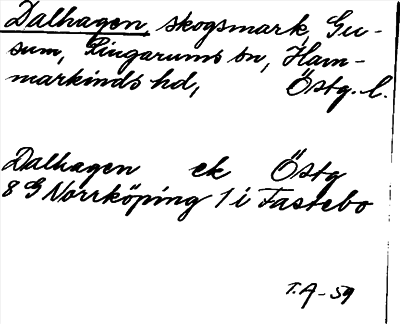 Dalhagen, skogsmark, Gu-
sum, Ringarums sn, Ham-
markinds hd, Östg. l.
Dalhagen ek Östg
8 G Norrköping 1 i Fastebo
T.A -59